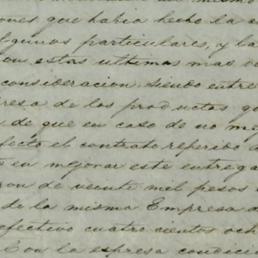 ones que había hecho la e
lgunos particulares, y la
on estas ultimas mas v
consideracion, siendo entre
resa de los productos qu
de que en caso de no me
fecto el contrato referido a
en mejorar este entrega
ron de veinte mil pesos
de la misma Empresa d
efectivo cuatro cientos och
Con la espresa condicio